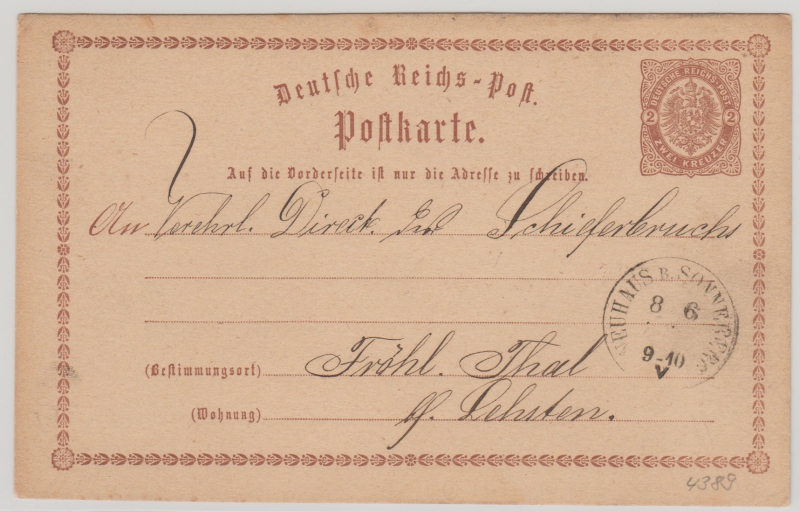 Deutsche Reichs-Post.
Postkarte.
DEUTSCHE REICHS-POST
2 2
ZWEI KREUZER
Auf die Vorderseite ist nur die Adresse zu schreiben.
An Verehrl. Direct. des Schieferbruchs
NEUHAUS B. SONNEBERG
8 6
9-10
V
(Bestimmungsort) Fröhl. Thal
(Wohnung) b. Lehsten.
4389